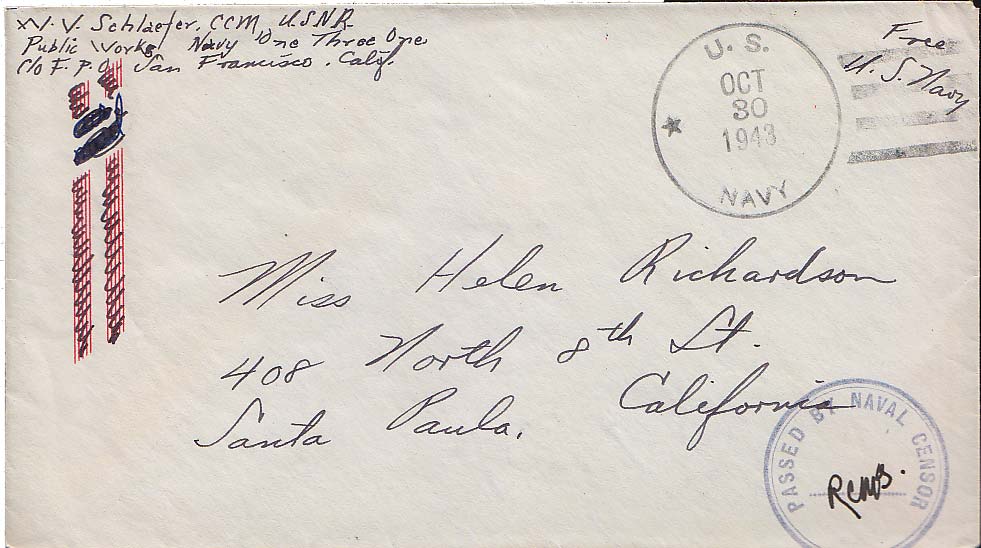 W. V. Schlaefer, CCM, U.S.N.R.
Public Works Navy One Three One
C/o F. P. O. San Francisco. Calif.
U. S.
OCT
30
1943
NAVY
Free
U. S. Navy
Miss Helen Richardson
408 North 8th St.
Santa Paula, California
PASSED BY NAVAL CENSOR